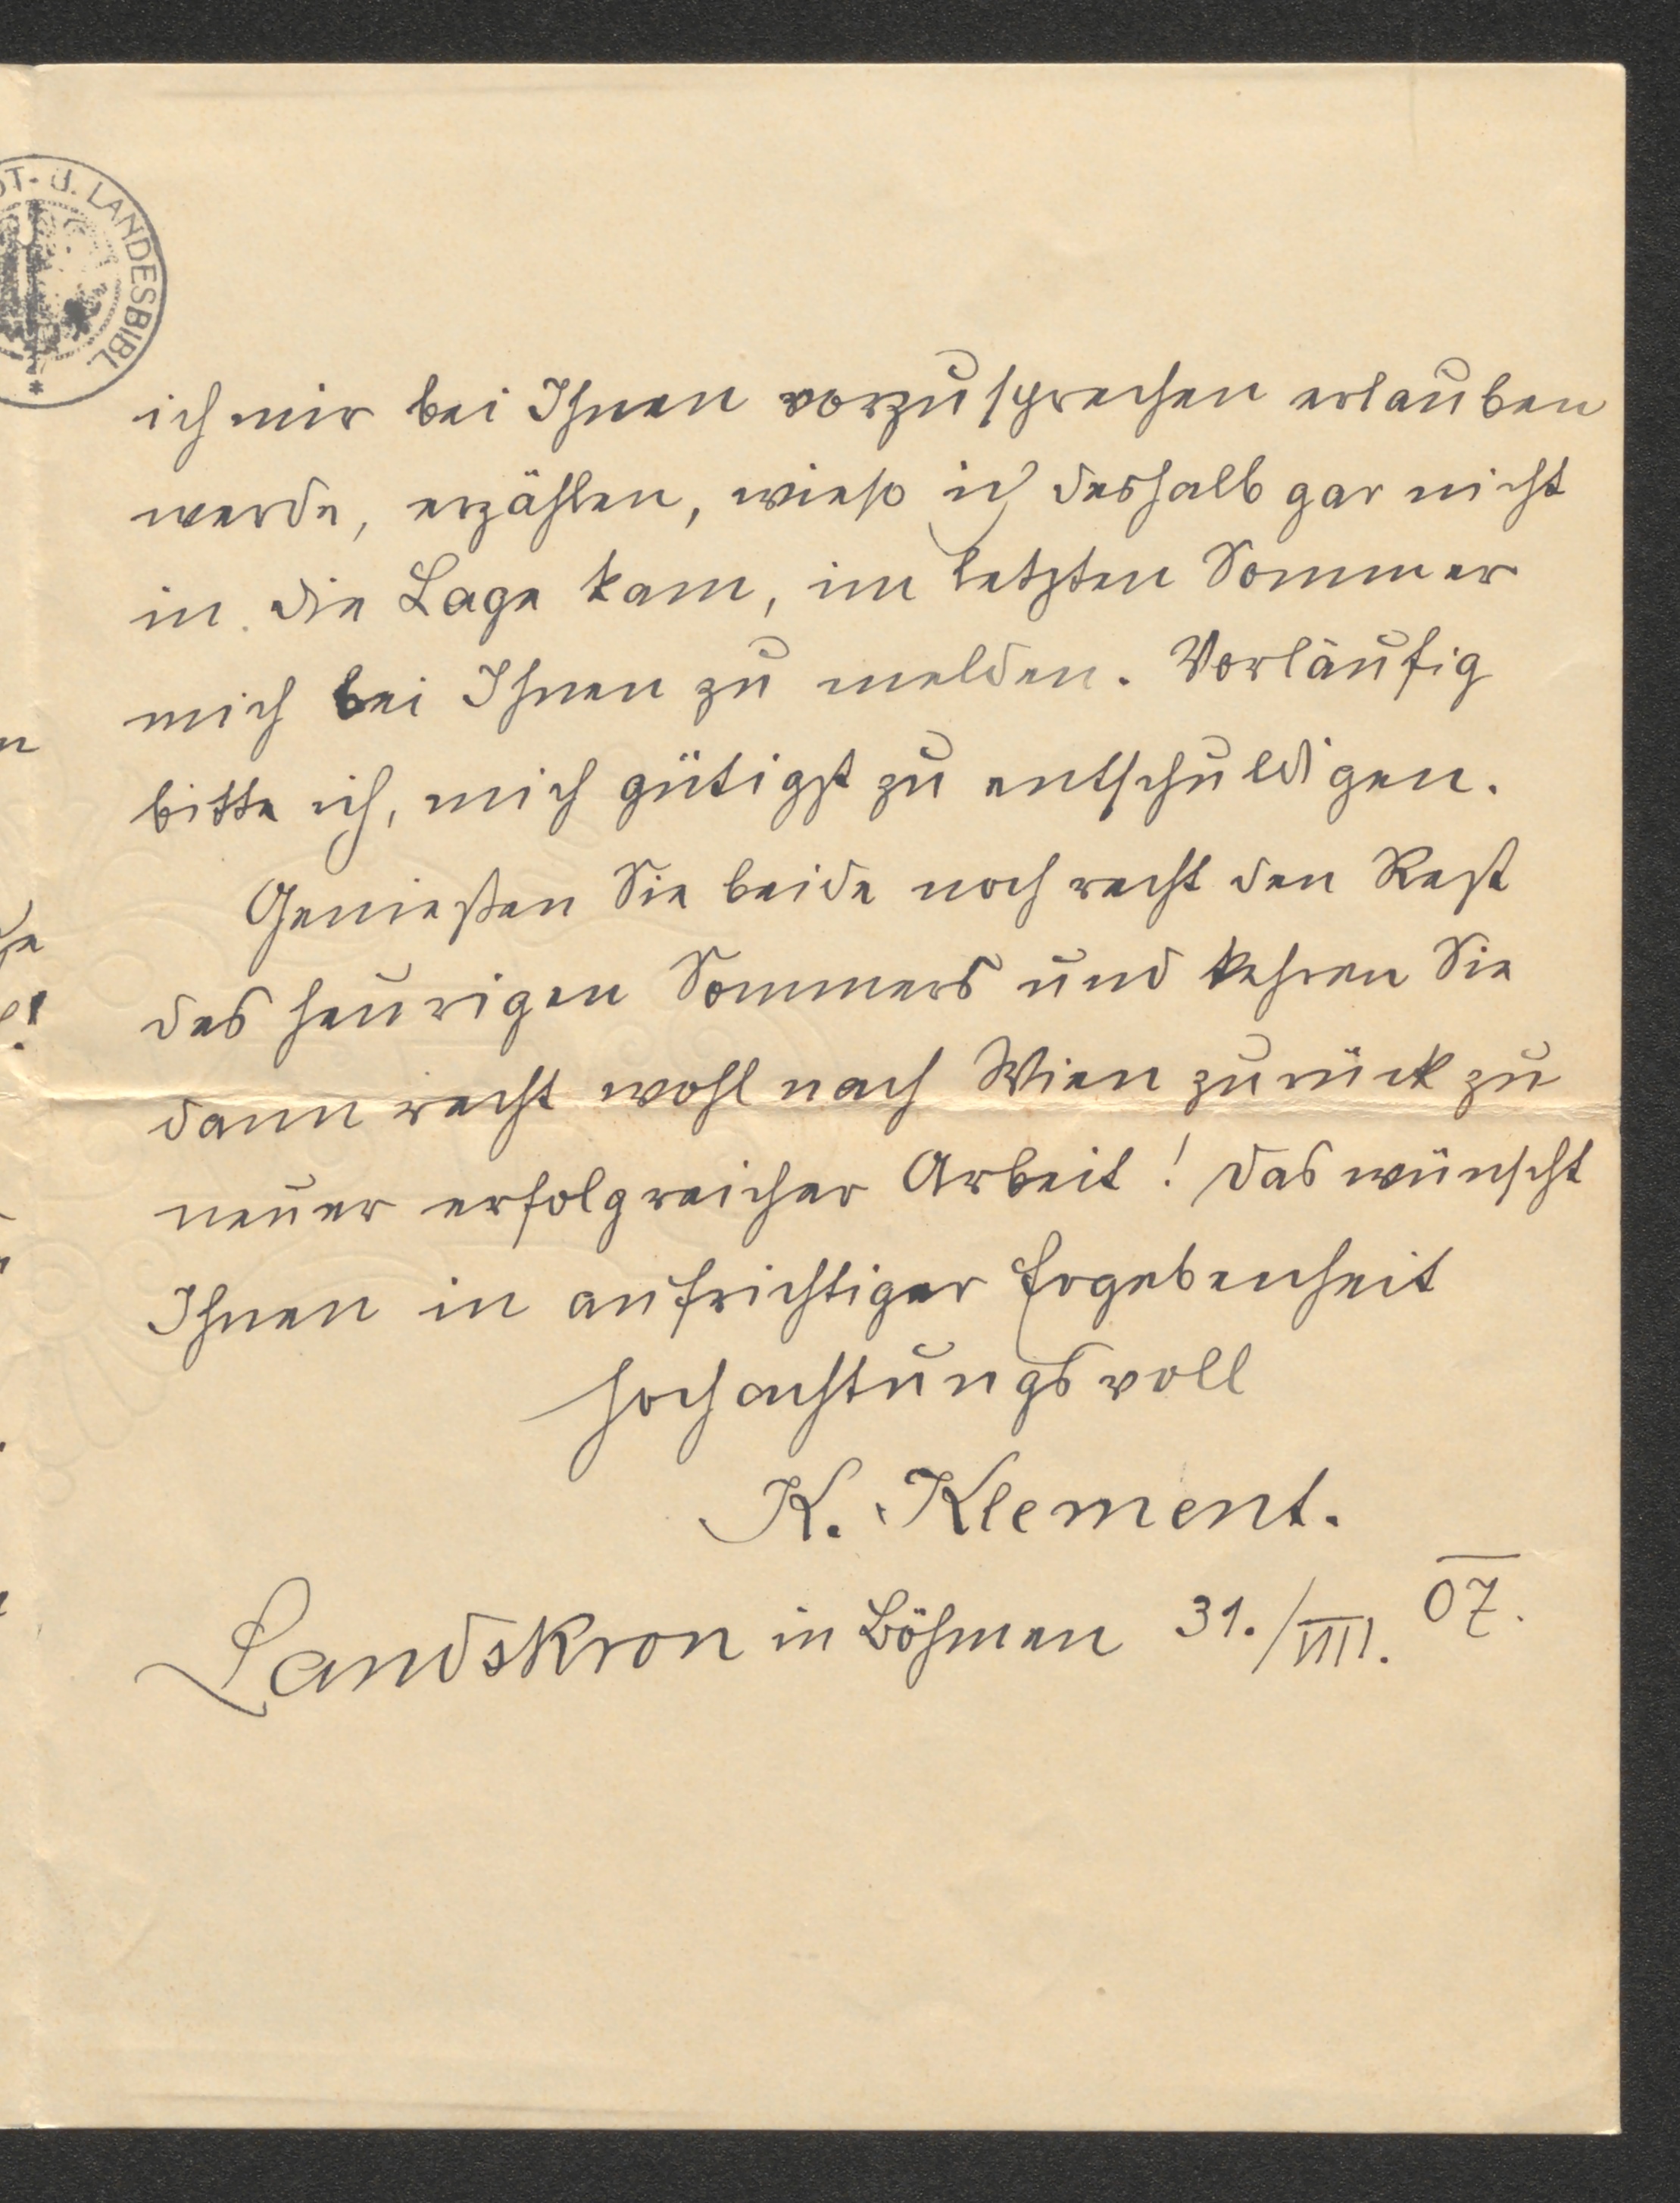 DT- U. LANDESBIBL.
*
ich mir bei Ihnen vorzusprechen erlauben
werde, erzählen, wieso ich deshalb gar nicht
in die Lage kam, im letzten Sommer
mich bei Ihnen zu melden. Vorläufig
bitte ich, mich gütigst zu entschuldigen.
Genießen Sie beide noch recht den Rest
des heurigen Sommers und kehren Sie
dann recht wohl nach Wien zurück zu
neuer erfolgreicher Arbeit! Das wünscht
Ihnen in aufrichtiger Ergebenheit
hochachtungsvoll
K. Klement.
Landskron in Böhmen 31./VIII. 07.